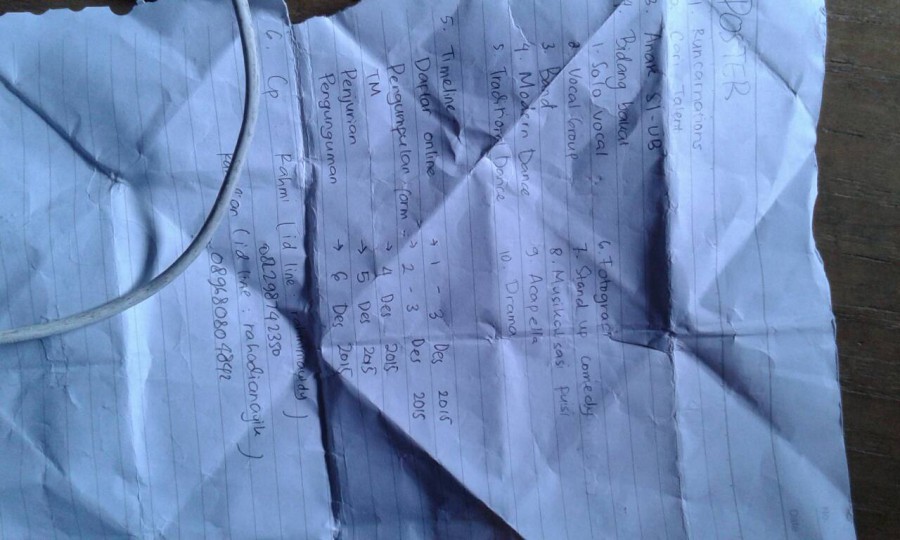 POSTER
1. Runcarnations
2. Cari Talent
3. Anak S1-UB
4. Bidang bakat
1. Solo vocal
2 Vocal Group
3 Band
4. Modern Dance
5 Traditional Dance
6. Fotografi
7. Stand up comedy
8. Musikalisasi puisi
9. Acapella
10. Drama
5. Timeline
Daftar online → 1 - 3 Des 2015
Pengumpulan form → 2 - 3 Des 2015
TM → 4 Des 2015
Penjurian → 5 Des 2015
Pengunguman → 6 Des 2015
6. Cp
Rahmi (id line )
082298742350
(id line : rahadianayik)